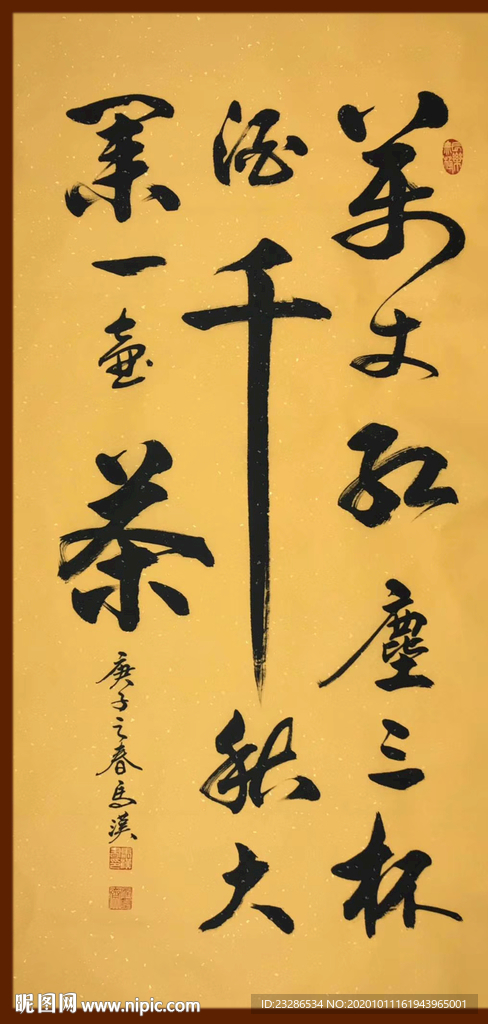 萬丈紅塵三杯
酒千秋大
業一壺茶
庚子之春馬漢
昵图网 www.nipic.com
ID:23286534 NO:20201011161943965001